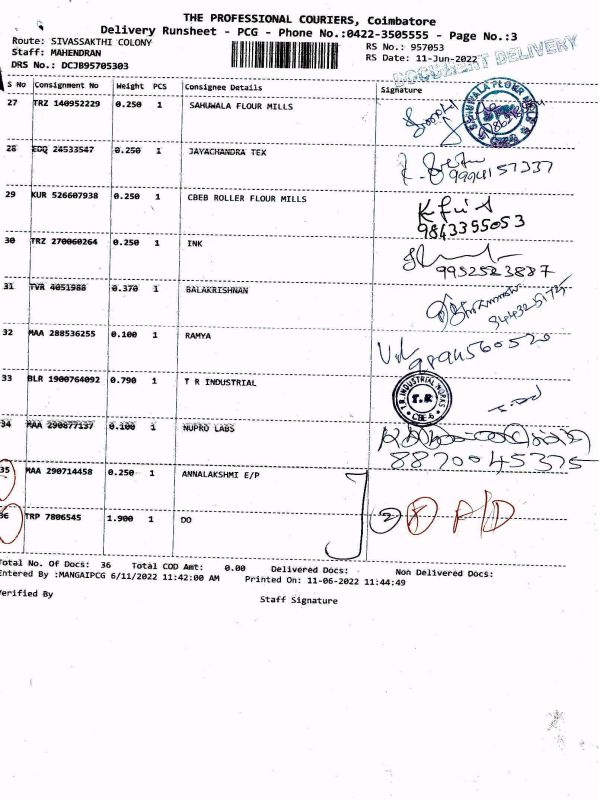 THE PROFESSIONAL COURIERS, Coimbatore
Delivery Runsheet - PCG - Phone No.:0422-3505555 - Page No.:3
Route: SIVASSAKTHI COLONY
Staff: MAHENDRAN
DRS No.: DCJB95705303
RS No.: 957053
RS Date: 11-Jun-2022
DOCUMENT DELIVERY
S No Consignment No Weight PCS Consignee Details Signature
27 TRZ 140952229 0.250 1 SAHUWALA FLOUR MILLS
28 EDQ 24533547 0.250 1 JAYACHANDRA TEX
9994157337
29 KUR 526607938 0.250 1 CBEB ROLLER FLOUR MILLS
9843355053
30 TRZ 270060264 0.250 1 INK
9952523837
31 TVR 4051988 0.370 1 BALAKRISHNAN
32 MAA 288536255 0.100 1 RAMYA
9894560520
33 BLR 1900764092 0.790 1 T R INDUSTRIAL
T.R. INDUSTRIAL WORKS
T.R
CBE
34 MAA 290877137 0.100 1 NUPRO LABS
8870045375
35 MAA 290714458 0.250 1 ANNALAKSHMI E/P
36 TRP 7806545 1.900 1 DO
2 8 A/D
Total No. Of Docs: 36 Total COD Amt: 0.00 Delivered Docs: Non Delivered Docs:
Entered By :MANGAIPCG 6/11/2022 11:42:00 AM Printed On: 11-06-2022 11:44:49
Verified By
Staff Signature